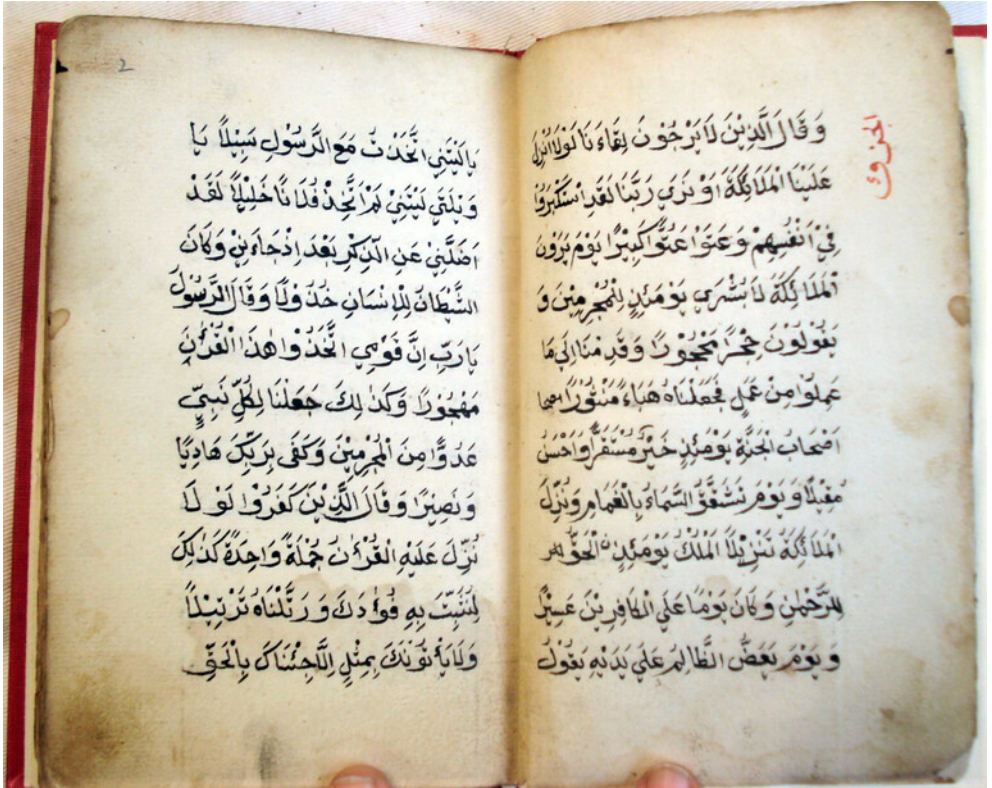 الجزوك
وَقَالَ الَّذِيْنَ لَايَرْجُوْنَ لِقَاءَنَا لَوْلَا اُنْزِلَ
عَلَيْنَا الْمَلَائِكَةُ اَوْ نَرٰي رَبَّنَا لَقَدِ اسْتَكْبَرُوْا
فِيْ اَنْفُسِهِمْ وَعَتَوْا عُتُوًّا كَبِيْرًا يَوْمَ يَرَوْنَ
الْمَلَائِكَةَ لَا بُشْرٰي يَوْمَئِذٍ لِلْمُجْرِمِيْنَ وَ
يَقُوْلُوْنَ حِجْرًا مَحْجُوْرًا وَقَدِمْنَا اِلٰي مَا
عَمِلُوْا مِنْ عَمَلٍ فَجَعَلْنَاهُ هَبَاءً مَنْثُوْرًا
اَصْحَابُ الْجَنَّةِ يَوْمَئِذٍ خَيْرٌ مُسْتَقَرًّا وَاَحْسَنُ
مَقِيْلًا وَيَوْمَ تَشَقَّقُ السَّمَاءُ بِالْغَمَامِ وَنُزِّلَ
الْمَلَائِكَةُ تَنْزِيْلًا اَلْمُلْكُ يَوْمَئِذٍ الْحَقُّ
لِلرَّحْمٰنِ وَكَانَ يَوْمًا عَلَي الْكَافِرِيْنَ عَسِيْرًا
وَيَوْمَ يَعَضُّ الظَّالِمُ عَلٰي يَدَيْهِ يَقُوْلُ
2
يَالَيْتَنِي اتَّخَذْتُ مَعَ الرَّسُوْلِ سَبِيْلًا يَا
وَيْلَتٰي لَيْتَنِيْ لَمْ اَتَّخِذْ فُلَانًا خَلِيْلًا لَقَدْ
اَضَلَّنِيْ عَنِ الذِّكْرِ بَعْدَ اِذْ جَاءَنِيْ وَكَانَ
الشَّيْطَانُ لِلْاِنْسَانِ خَذُوْلًا وَقَالَ الرَّسُوْلُ
يَارَبِّ اِنَّ قَوْمِي اتَّخَذُوْا هٰذَا الْقُرْاٰنَ
مَهْجُوْرًا وَكَذٰلِكَ جَعَلْنَا لِكُلِّ نَبِيٍّ
عَدُوًّا مِنَ الْمُجْرِمِيْنَ وَكَفٰي بِرَبِّكَ هَادِيًا
وَنَصِيْرًا وَقَالَ الَّذِيْنَ كَفَرُوْا لَوْلَا
نُزِّلَ عَلَيْهِ الْقُرْاٰنُ جُمْلَةً وَاحِدَةً كَذٰلِكَ
لِنُثَبِّتَ بِهِ فُؤَادَكَ وَرَتَّلْنَاهُ تَرْتِيْلًا
وَلَايَأْتُوْنَكَ بِمَثَلٍ اِلَّا جِئْنَاكَ بِالْحَقِّ